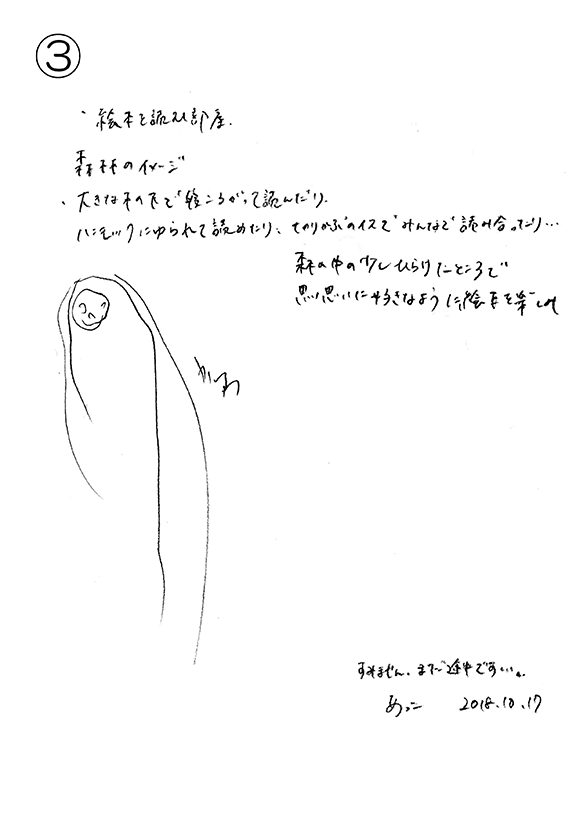 ③
・絵本を読む部屋.
森林のイメージ
・大きな木の下で寝ころがって読んだり.
ハンモックにゆられて読めたり、切りかぶのイスでみんなで読み合ったり…
森の中の少しひらけたところで
思い思いに好きなように絵本を楽しめ
すみません、まだ途中です…。
あっこ 2018.10.17